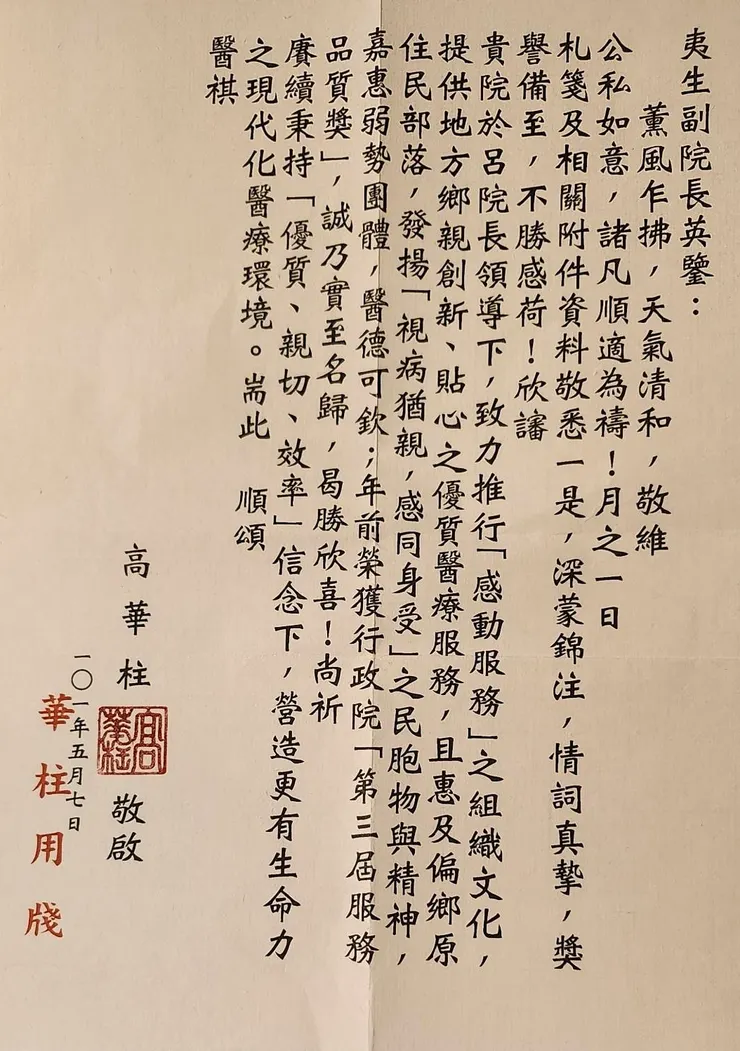 夷生副院長英鑒：
薰風乍拂，天氣清和，敬維
公私如意，諸凡順適為禱！月之一日
札箋及相關附件資料敬悉一是，深蒙錦注，情詞真摯，獎
譽備至，不勝感荷！欣讅
貴院於呂院長領導下，致力推行「感動服務」之組織文化，
提供地方鄉親創新、貼心之優質醫療服務，且惠及偏鄉原
住民部落，發揚「視病猶親，感同身受」之民胞物與精神，
嘉惠弱勢團體，醫德可欽；年前榮獲行政院「第三屆服務
品質獎」，誠乃實至名歸，曷勝欣喜！尚祈
賡續秉持「優質、親切、效率」信念下，營造更有生命力
之現代化醫療環境。耑此　順頌
醫祺
高華柱
高華柱
敬啟
一〇一年五月七日
華柱用牋